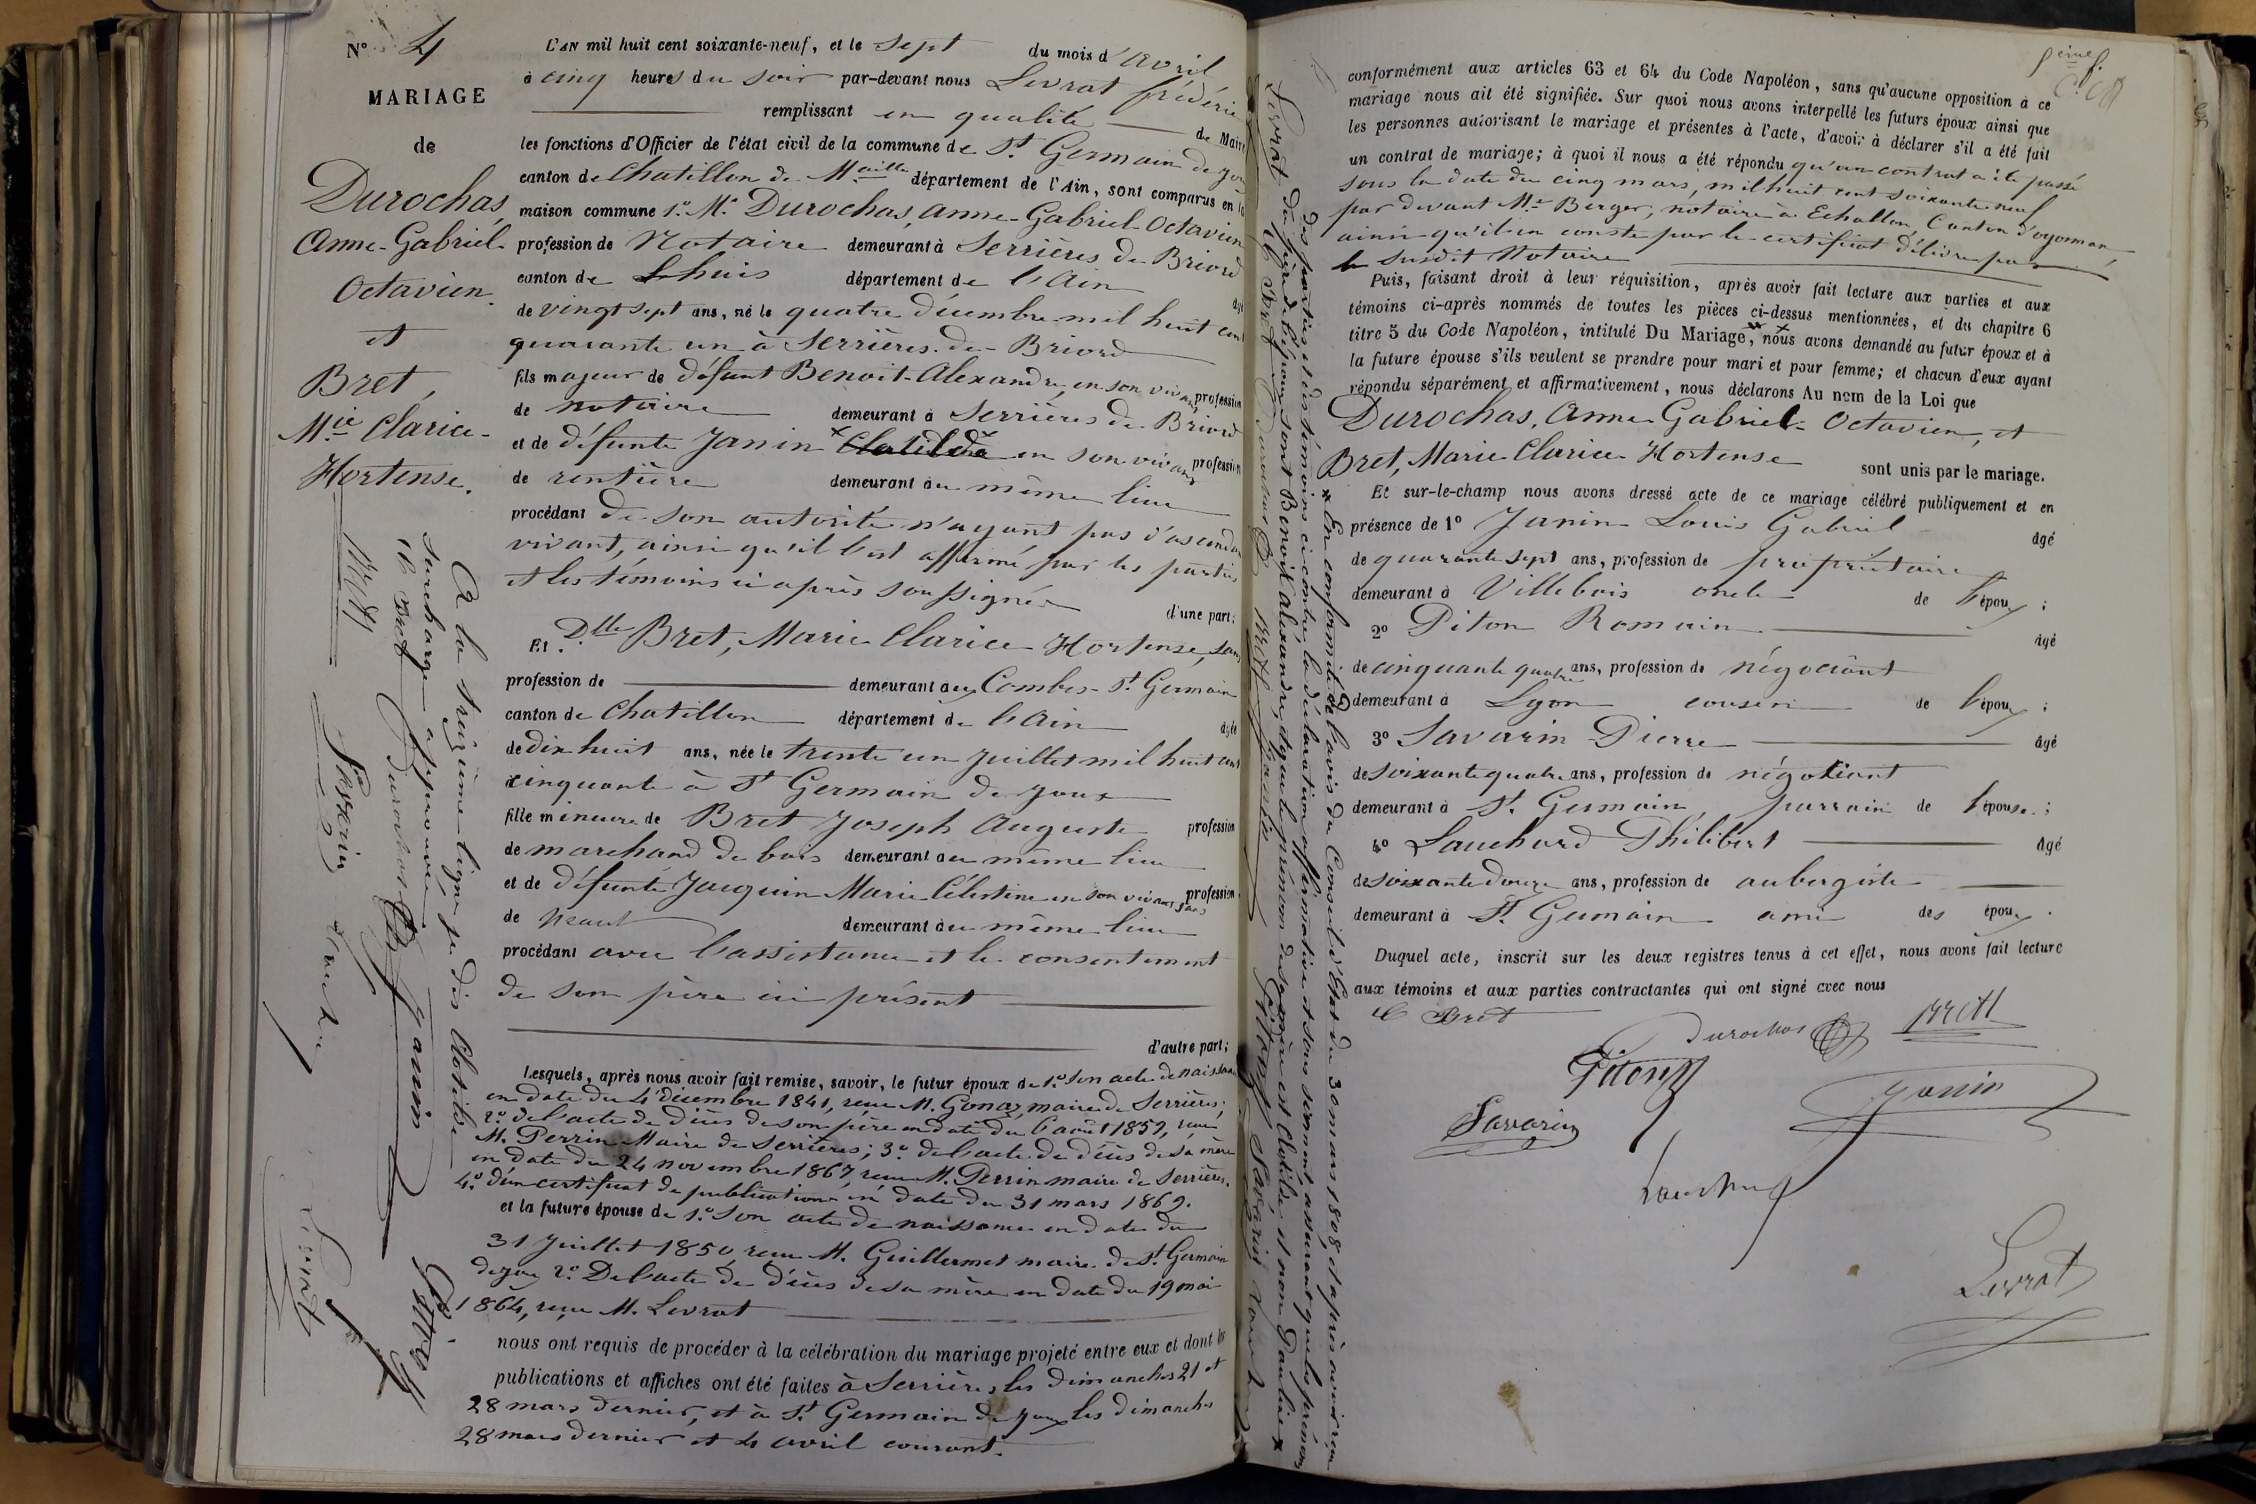 N° 4
MARIAGE
de
Durochas,
Anne-Gabriel-
Octavien.
et
Bret,
Mie Clarice-
Hortense.
L'AN mil huit cent soixante-neuf, et le sept du mois d'avril
à cinq heures du soir par-devant nous Levrat frédéric
remplissant en qualité de Maire
les fonctions d'Officier de l'état civil de la commune de St Germain de Joux
canton de Chatillon de Maille département de l'Ain, sont comparus en la
maison commune 1° M. Durochas, Anne-Gabriel-Octavien
profession de Notaire demeurant à Serrières de Briord
canton de Lhuis département de l'Ain âgé
de vingt sept ans, né le quatre décembre mil huit cent
quarante un à Serrières de Briord
fils majeur de défunt Benoit-Alexandre en son vivant profession
de notaire demeurant à Serrières de Briord
et de défunte Janin Clotilde en son vivant profession
de rentière demeurant au même lieu
procédant de son autorité n'ayant pas d'ascendant
vivant, ainsi qu'il l'est affirmé par les parties
et les témoins ci après soussignés d'une part;
Et Dlle Bret, Marie Clarice Hortense, sans
profession de demeurant aux Combes-St Germain
canton de Chatillon département de l'Ain âgée
de dix huit ans, née le trente un juillet mil huit cent
cinquante à St Germain de Joux
fille mineure de Bret Joseph Auguste profession
de marchand de bois demeurant au même lieu
et de défunte Jacquin Marie Célestine en son vivant sans profession
de néant demeurant au même lieu
procédant avec l'assistance et le consentement
de son père ici présent
d'autre part;
Lesquels, après nous avoir fait remise, savoir, le futur époux de 1° son acte de naissance
en date du 4 décembre 1841, reçu M. Gonaz, maire de Serrières;
2° de l'acte de décès de son père en date du 6 août 1859, reçu
M. Perrin Maire de Serrières; 3° de l'acte de décès de sa mère
en date du 24 novembre 1867, reçu M. Perrin maire de Serrières.
4° d'un certificat de publication en date du 31 mars 1869.
et la future épouse de 1° son acte de naissance en date du
31 juillet 1850, reçu M. Guillermet maire de St Germain
de Joux 2° De l'acte de décès de sa mère en date du 19 mai
1864, reçu M. Levrat
nous ont requis de procéder à la célébration du mariage projeté entre eux et dont les
publications et affiches ont été faites à Serrières les dimanches 21 et
28 mars dernier, et à St Germain de Joux les dimanches
28 mars dernier et 4 avril courant.
A la treizième ligne je dis Clotilde
surcharge approuvée
C Bret Durochas Janin
Bret Savarin Pitony
Levrat
conformément aux articles 63 et 64 du Code Napoléon, sans qu'aucune opposition à ce
mariage nous ait été signifiée. Sur quoi nous avons interpellé les futurs époux ainsi que
les personnes autorisant le mariage et présentes à l'acte, d'avoir à déclarer s'il a été fait
un contrat de mariage; à quoi il nous a été répondu qu'un contrat a été passé
sous la date du cinq mars, mil huit cent soixante neuf
par devant Me Berger, notaire à Echallon, Canton d'oyonnax,
ainsi qu'il en conste par le certificat délivré par
le susdit Notaire
Puis, faisant droit à leur réquisition, après avoir fait lecture aux parties et aux
témoins ci-après nommés de toutes les pièces ci-dessus mentionnées, et du chapitre 6
titre 5 du Code Napoléon, intitulé Du Mariage, x nous avons demandé au futur époux et à
la future épouse s'ils veulent se prendre pour mari et pour femme; et chacun d'eux ayant
répondu séparément et affirmativement, nous déclarons Au nom de la Loi que
Durochas, Anne Gabriel-Octavien, et
Bret, Marie Clarice Hortense sont unis par le mariage.
Et sur-le-champ nous avons dressé acte de ce mariage célébré publiquement et en
présence de 1° Janin Louis Gabriel âgé
de quarante sept ans, profession de propriétaire
demeurant à Villebois oncle de l'époux;
2° Piton Romain âgé
de cinquante quatre ans, profession de négociant
demeurant à Lyon cousin de l'époux;
3° Savarin Pierre âgé
de soixante quatre ans, profession de négotiant
demeurant à St Germain parrain de l'épouse;
4° Lauchard Philibert âgé
de soixante douze ans, profession de aubergiste
demeurant à St Germain ami des époux.
Duquel acte, inscrit sur les deux registres tenus à cet effet, nous avons fait lecture
aux témoins et aux parties contractantes qui ont signé avec nous
C Bret
Durochas Bret
Pitony Janin
Savarin
Levrat
x En conformité de l'avis du Conseil d'Etat du 30 mars 1808, et après avoir reçu
des parties et des témoins ci-contre, la déclaration affirmative et sous serment, assurant que les prénoms
du père de l'époux sont Benoit alexandre, et que le prénom de sa mère est Clotilde et non Pauline x
Levrat C Bret Durochas Bret Janin Pitony Savarin